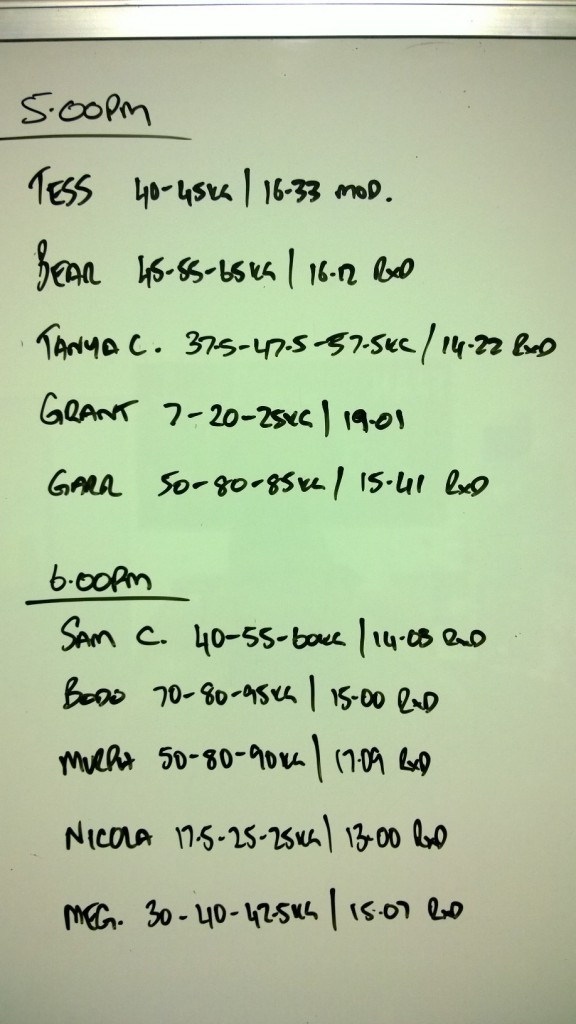 5.00PM
TESS 40-45KG | 16.33 MOD.
BEAR 45-55-65KG | 16.12 RXD
TANYA C. 37.5-47.5-57.5KG | 14.22 RXD
GRANT 7-20-25KG | 19.01
GARR 50-80-85KG | 15.41 RXD
6.00PM
SAM C. 40-55-60KG | 14.03 RXD
BODO 70-80-95KG | 15.00 RXD
50-80-90KG | 17.09 RXD
NICOLA 17.5-25-25KG | 13.00 RXD
MEG. 30-40-42.5KG | 15.07 RXD